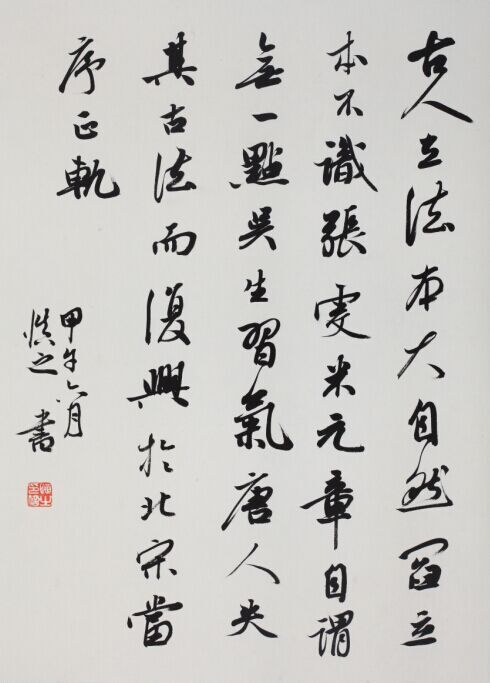 古人立法本大自然閻立
本不識張米元章自謂
無一點吳生習氣唐人失
其古法而復興於北宋當
序正軌
甲午六月
慎之書